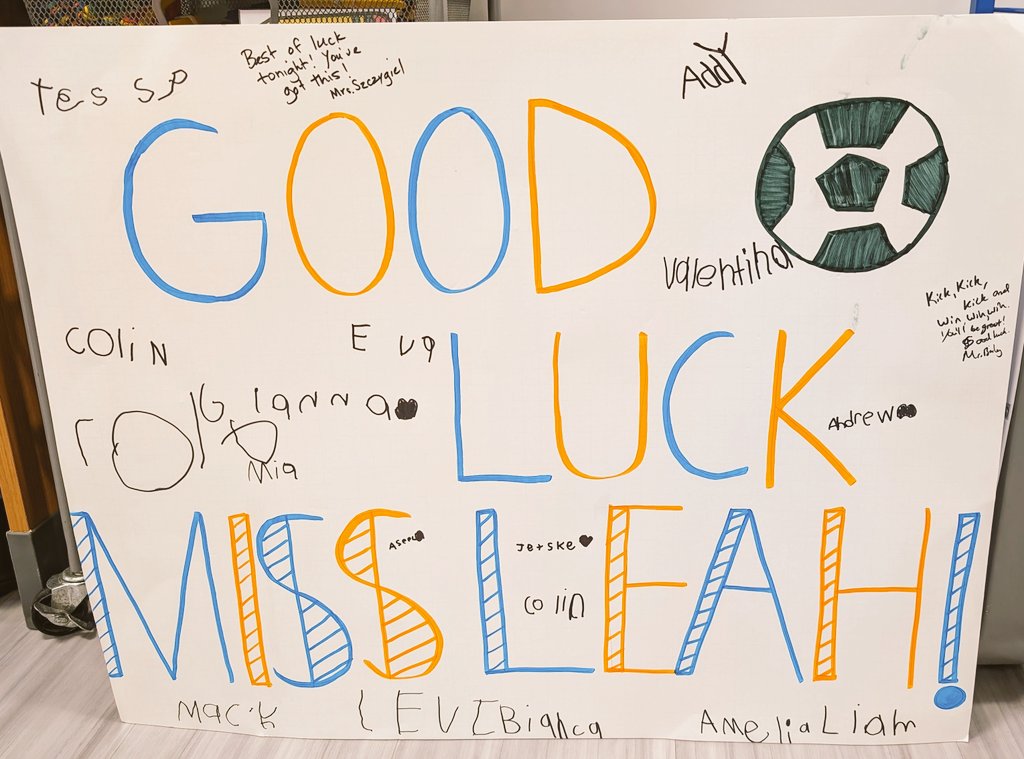 Best of luck
tonight! You've
got this!
Mrs. Szczygiel
Addy
Yes sp
GOOD
Valentina
Kick, Kick,
Kick and
Win, Win, Win.
You'll be great!
Good luck.
Colin
Eva
LUCK
Gianna
Andrew
Mia
MISS LEAH!
Jetske
Colin
Mack
LEVI Bianca
Amelia Liam